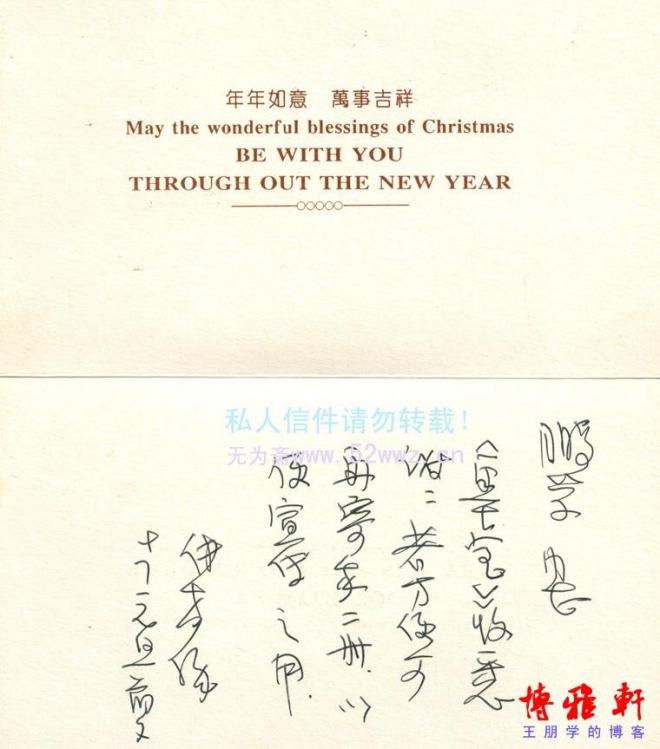 年年如意 萬事吉祥
May the wonderful blessings of Christmas
BE WITH YOU
THROUGH OUT THE NEW YEAR
私人信件请勿转载！
无为斋www.52wwz.cn
鹏学
收悉
谢：若方便可
再寄来二册．以
便宣传之用．
元旦
博雅軒
王朋学的博客